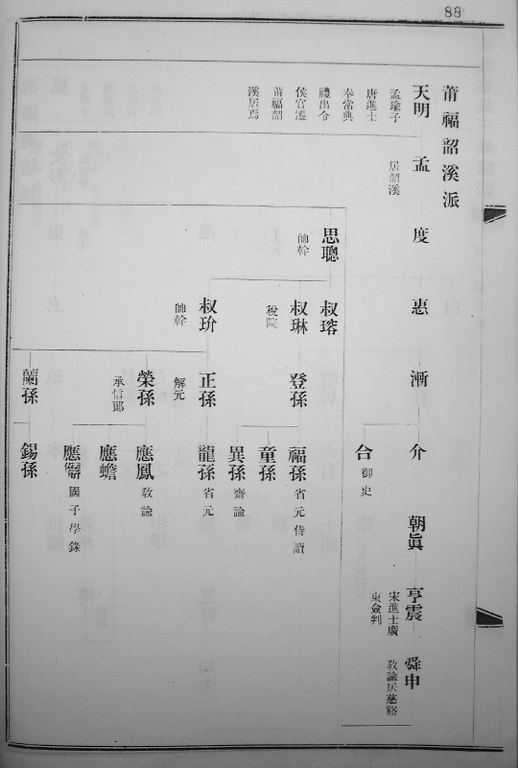 88
莆福韶溪派
天明
孟瑜子
唐進士
奉常典
禮出令
侯官遷
莆福韶
溪居焉
孟
居韶溪
度
惠
漸
介
朝眞
亨震
宋進士廣
東僉判
舜申
敎諭居慈谿
台
御史
思聰
帥幹
叔瑢
叔琳
稅院
登孫
福孫
省元侍讀
童孫
異孫
齋諭
叔玠
帥幹
正孫
解元
龍孫
省元
榮孫
承信郎
應鳳
敎諭
應蟾
國子學錄
蘭孫
錫孫